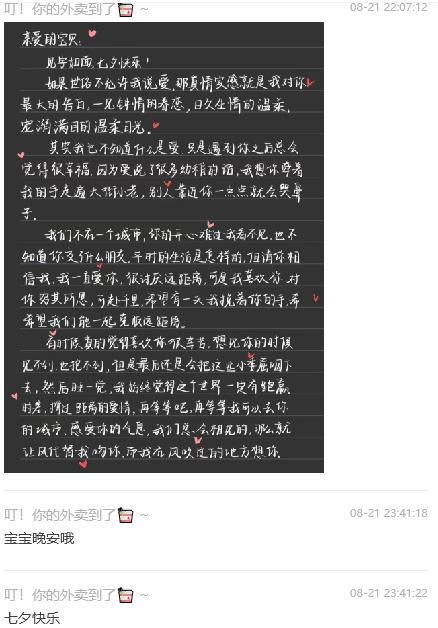 叮！你的外卖到了 ~ 08-21 22:07:12
亲爱的宝贝:
见字如面,七夕快乐!
如果世俗不允许我说爱,那真情实感就是我对你
最大的告白,一见钟情的眷恋,日久生情的温柔,
宠溺满目的温柔目光.
其实我也不知道什么是爱,只是遇到你之后总会
觉得很幸福,因为爱说了很多幼稚的话,我想你牵着
我的手走遍大街小巷,别人靠近你一点点就会哭鼻
子.
我们不在一个城市,你的开心难过我看不见,也不
知道你交什么朋友,平时的生活是怎样的,但请你相
信我,我一直爱你,很讨厌远距离,可是我喜欢你.对
你努其所愿,可赴千里,希望有一天我挽着你的手,希
希望我们能一起克服远距离.
有时候真的觉得喜欢你很辛苦,想见你的时候
见不到,也抱不到,但是最后还是会把这些小委屈咽下
去,然后睡一觉,我始终觉得这个世界一定有能赢
时差,押过距离的爱情,再等等吧,再等等我可以去你
的城市,感受你的气息,我们总会相见的,那么就
让风代替我吻你,而我在风吹过的地方想你.
叮！你的外卖到了 ~ 08-21 23:41:18
宝宝晚安哦
叮！你的外卖到了 ~ 08-21 23:41:22
七夕快乐